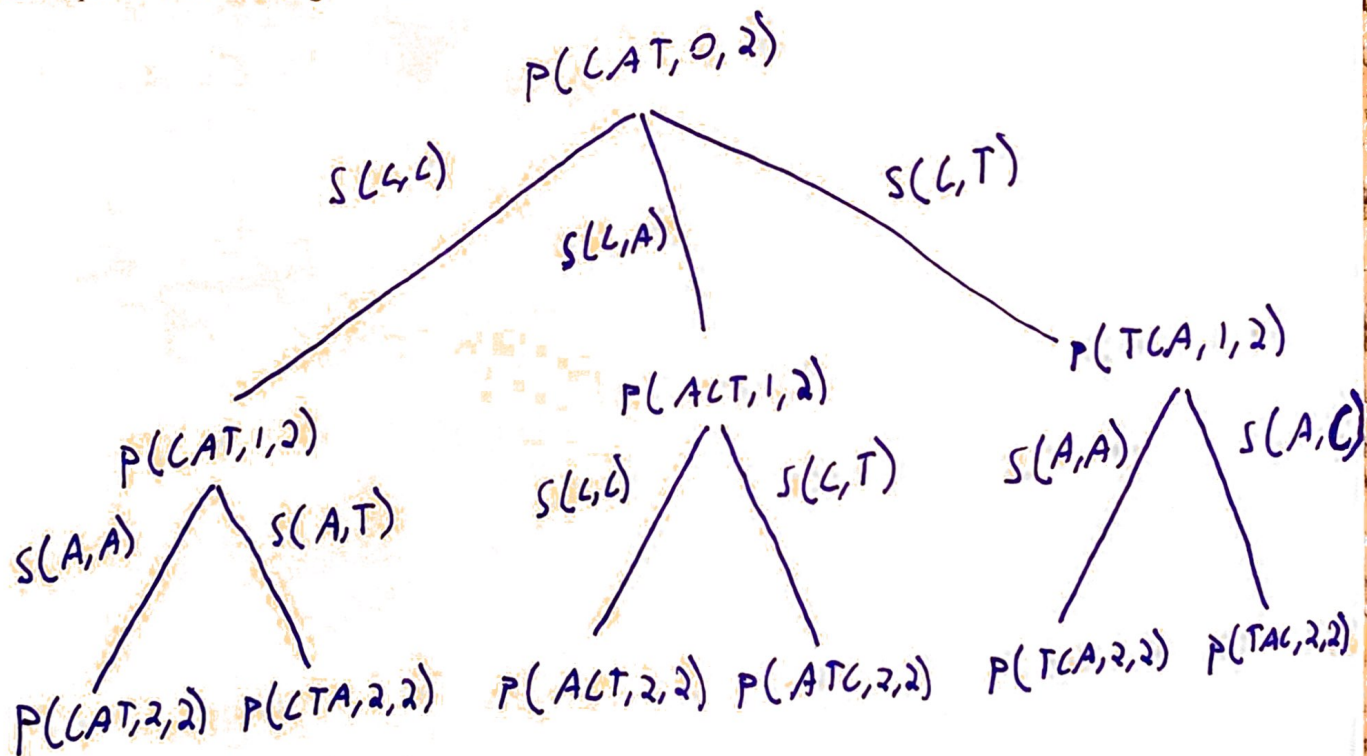 P(CAT,0,2)
S(C,C)
S(C,A)
S(C,T)
P(CAT,1,2)
P(ACT,1,2)
P(TCA,1,2)
S(A,A)
S(A,T)
S(C,C)
S(C,T)
S(A,A)
S(A,C)
P(CAT,2,2)
P(CTA,2,2)
P(ACT,2,2)
P(ATC,2,2)
P(TCA,2,2)
P(TAC,2,2)